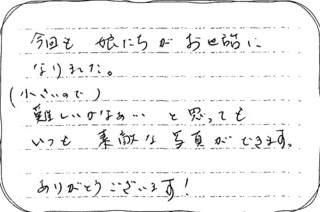 今回も 娘たちが お世話に
なりました。
(小さいので)
難しいかなぁ… と思っても
いつも 素敵な 写真ができます。
ありがとうございます!